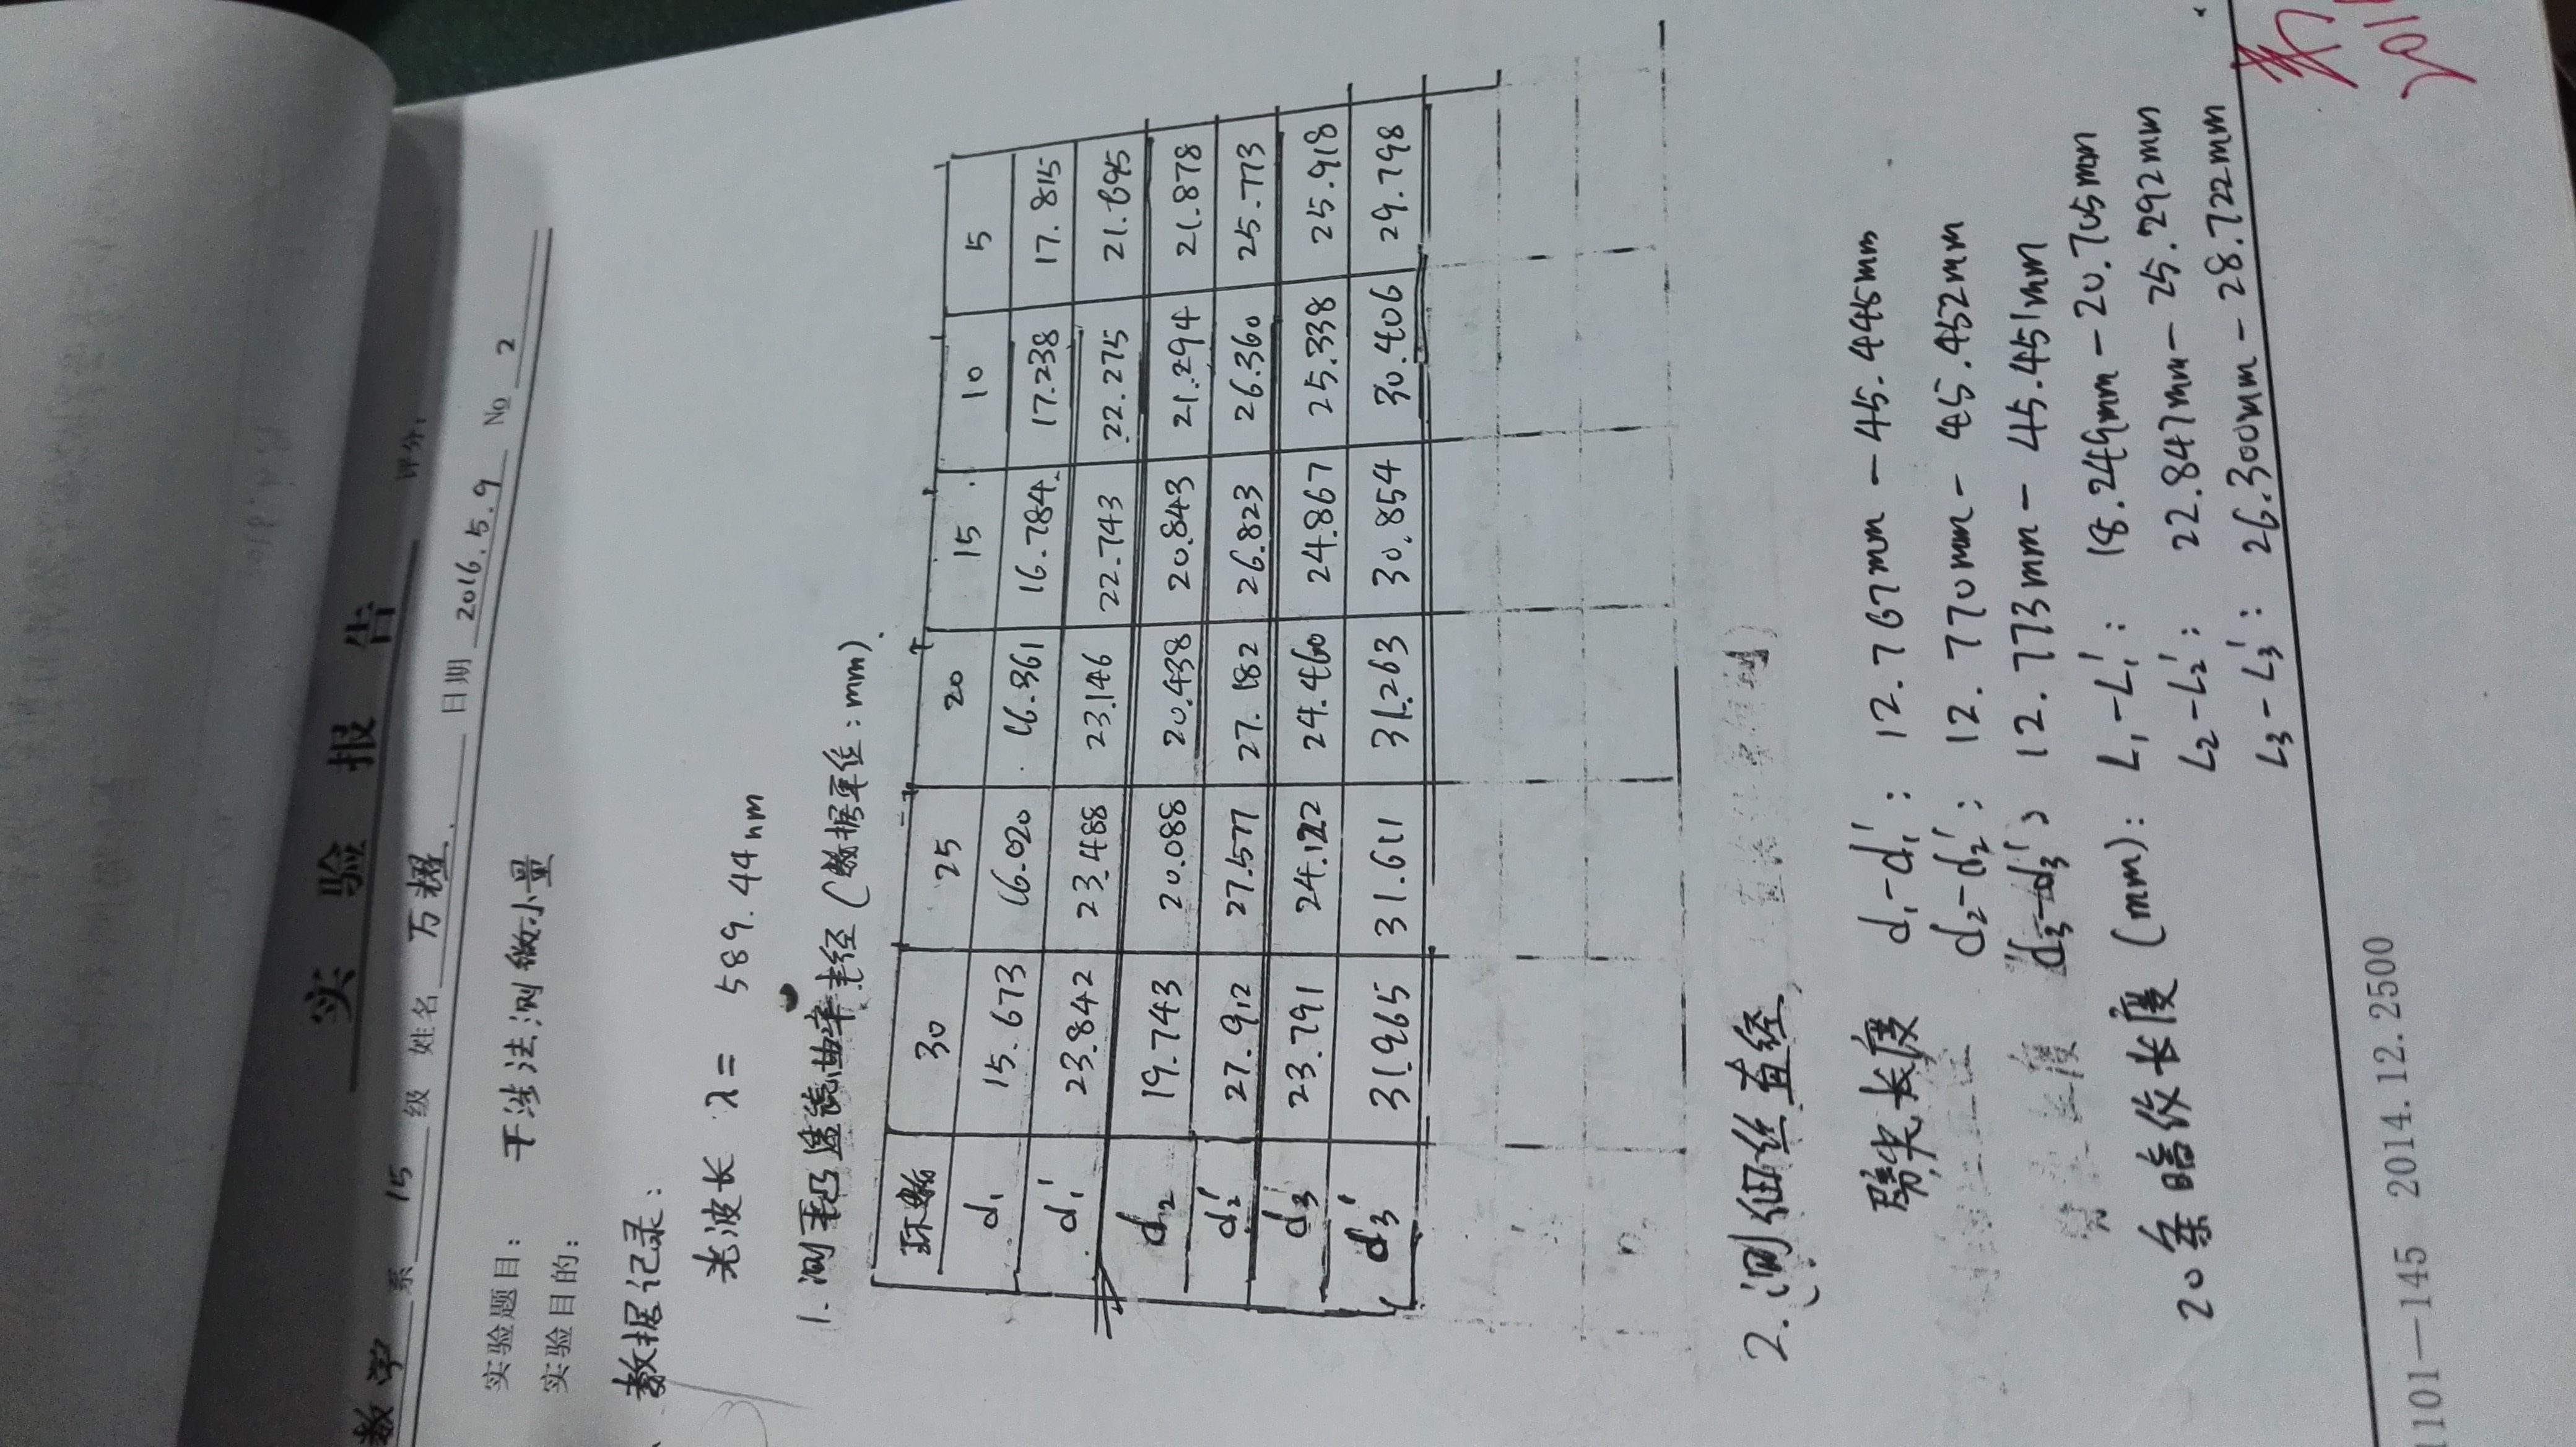 实 验 报 告
评分:
数学 系 15 级 姓名 万 日期 2016.5.9 No 2
实验题目: 干涉法测微小量
实验目的:
数据记录:
光波长 λ= 589.44nm
1. 测平凸透镜曲率半径 (数据单位:mm).
环数 30 25 20 15 10 5
d₁ 15.673 16.020 16.361 16.784 17.238 17.815
d₁' 23.842 23.488 23.146 22.743 22.275 21.695
d₂ 19.743 20.088 20.438 20.843 21.294 21.878
d₂' 27.912 27.577 27.182 26.823 26.360 25.773
d₃ 23.791 24.122 24.460 24.867 25.338 25.918
d₃' 31.965 31.611 31.263 30.854 30.406 29.798
2. 测细丝直经
劈尖长度 d₁-d₁': 12.767mm - 45.445mm
d₂-d₂': 12.770mm - 45.452mm
d₃-d₃': 12.773mm - 45.451mm
20条暗纹长度 (mm): L₁-L₁': 18.249mm - 20.705mm
L₂-L₂': 22.847mm - 25.292mm
L₃-L₃': 26.300mm - 28.722mm
1101—145 2014.12.2500